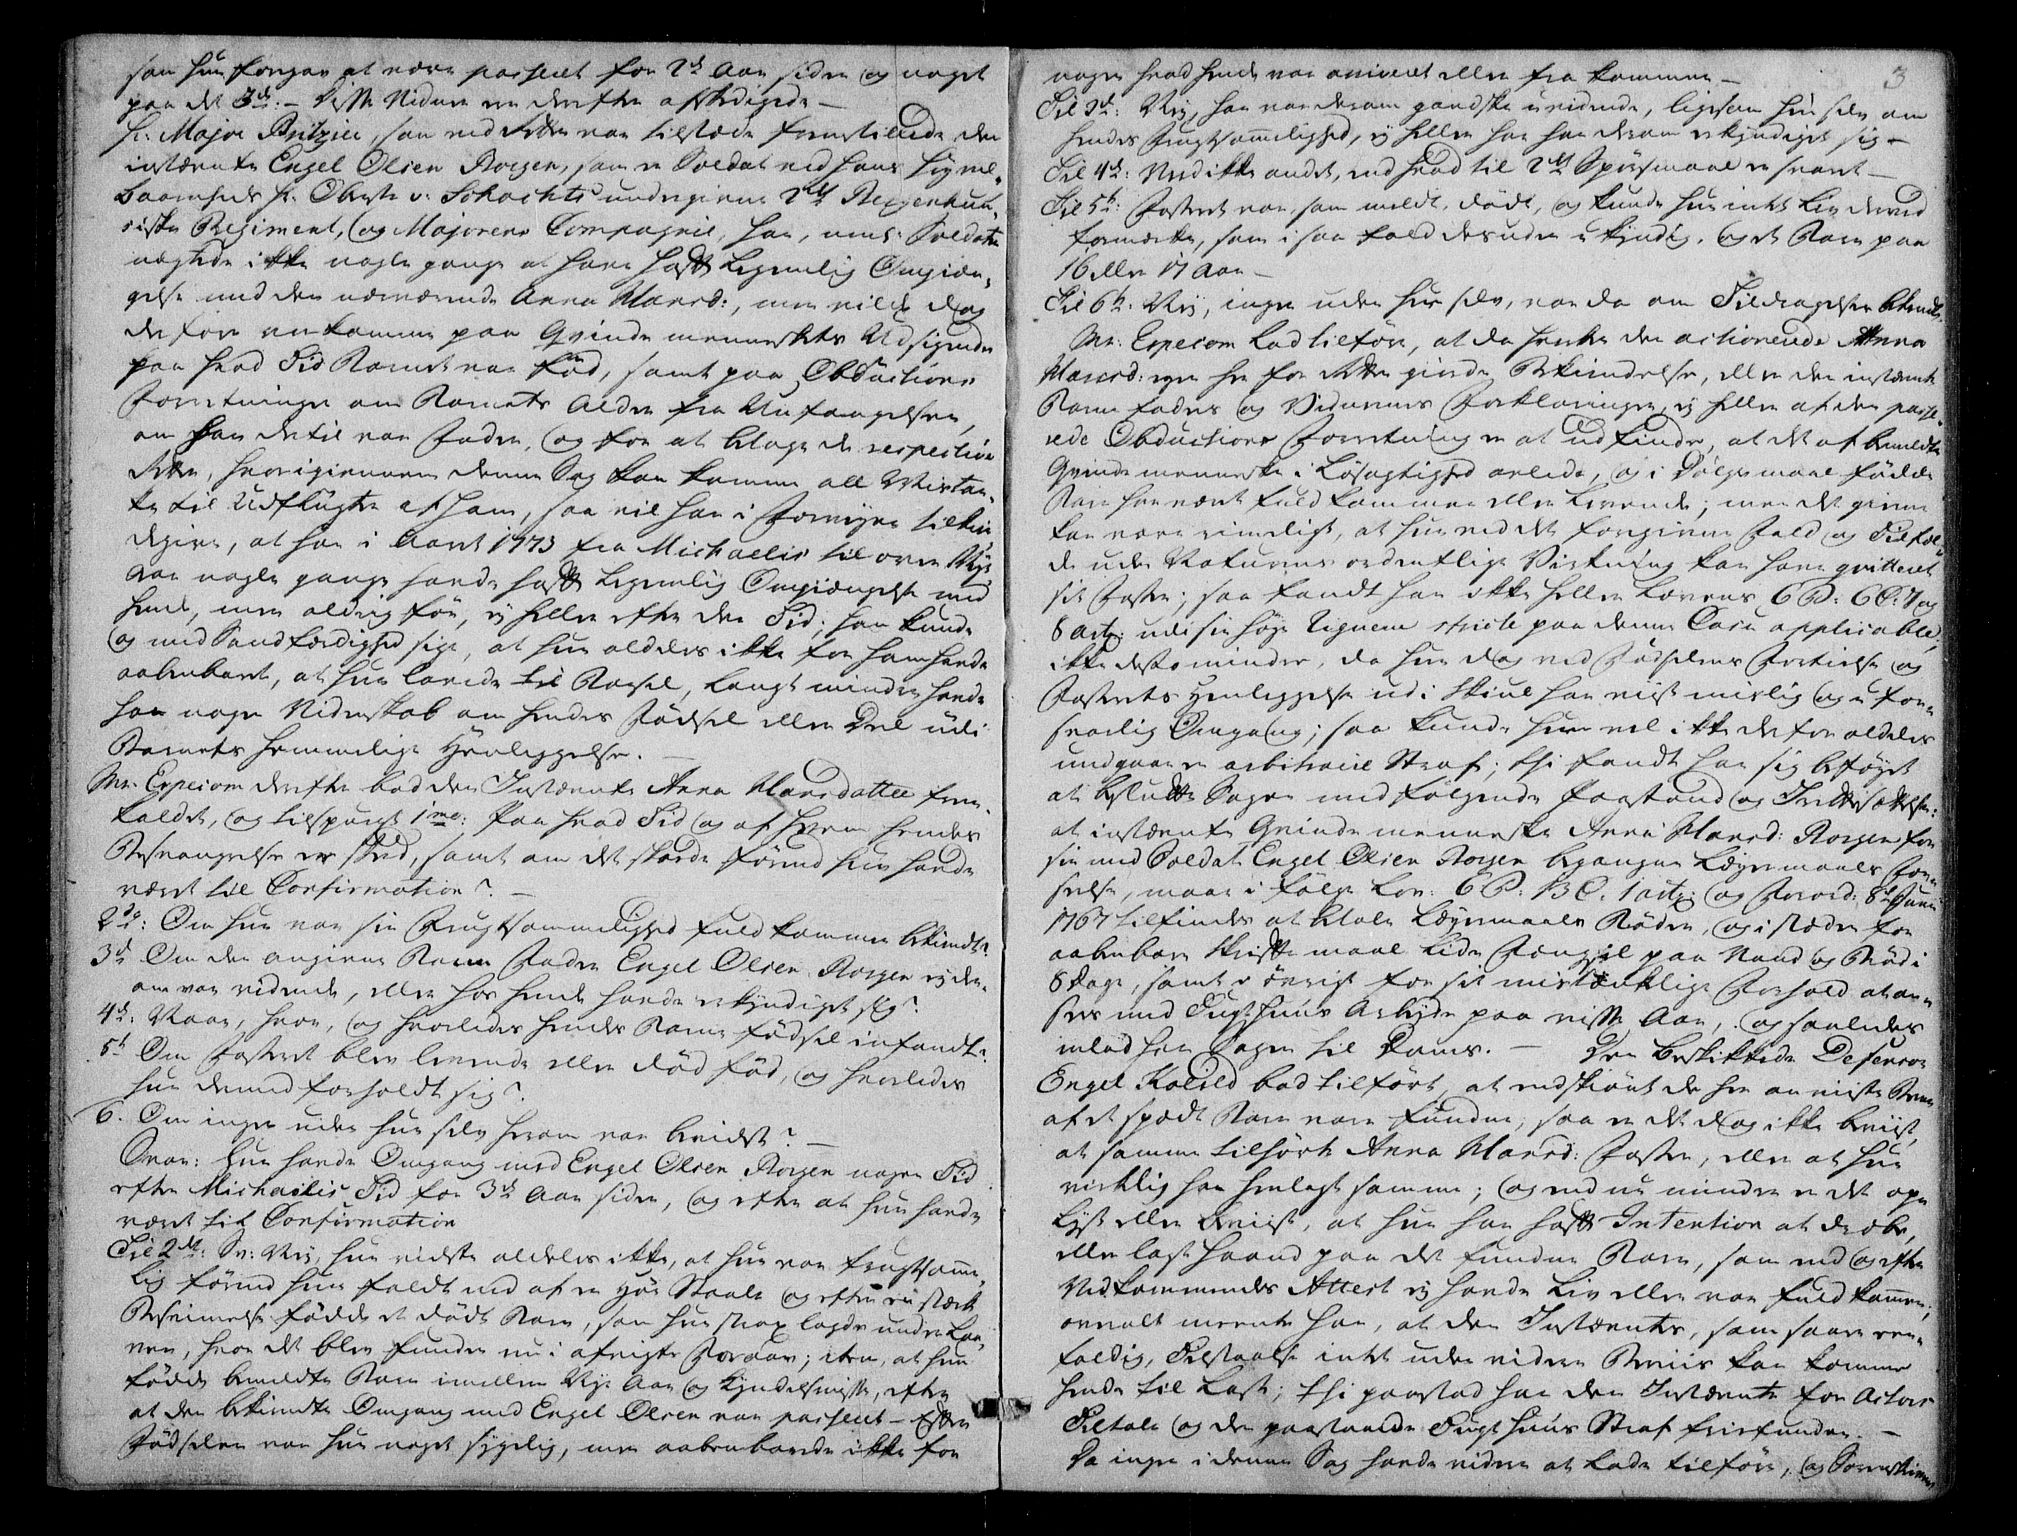 som hun foregav at være passeret for 2de Aar siden og noget
paa det 3die. – Disse Vidner ere derefter afskediget –
Hr. Major Britzier, som ved Retten var tilstæde fremstillede den
instævnte Engel Olsen Borgen, som er Soldat ved hans Højvel-
baarenheds Hr. Oberste v: Schachts undergivne 2det Bergenhuu-
siske Regiment, og Majorens Compagnie, han, ermt: Soldat
nægtede ikke nogle gange at have hafft Legemlig Omgiæn-
gelse med den nærværende Anna Monsd:, men vilde dog
derfore ankomme paa Qvinde menneskets Udsigende
paa hvad Tid Barnet var fød, samt paa Obductions
Forretningen om Barnets Alder fra Unfangelsen,
om han dertil var Fader, og for at betage de respective
Retter, hvorigiennem denne Sag kan komme all Mistan-
ke til Udflugter af ham, saa vil han i Forvejen tilkien-
degive, at han i Aaret 1773 fra Michaelis til over Nyt
Aar nogle gange havde hafft Legemlig Omgiængelse med
hende, men aldrig før, ej heller efter den Tid; han kunde
og med Sandfærdighed sige, at hun aldeles ikke for ham havde
aabenbaret, at hun lavede til Barsel, langt mindre havde
han nogen Videnskab om hendes Fødsel eller Deel udi
Barnets hemmelige Henleggelse. –
Mr. Espeiom derefter bad den Instævnte Anna Monsdatter frem-
kaldet, og tilspurgt 1mo: Paa hvad Tid og af hvem hendes
Besvangrelse er skeed, samt om det skeede førend hun havde
været til Confirmation? –
2do: Om hun var sin Frugtsommelighed fuldkommen bekiendt?
3die Om den angivne Barne Fader Engel Olsen Borgen ej der-
om var vidende, eller hos hende havde erkyndiget sig?
4de: Naar, hvor, og hvorledes hendes Barne Fødsel indfandt?
5te Om Fosteret blev levende eller død fød, og hvorledes
hun dermed forholdt sig?
6. Om ingen uden hun selv herom var bevidst? –
Svar: Hun havde Omgang med Engel Olsen Borgen nogen Tid
efter Michaelis Tid for 3de Aar siden, og efter at hun havde
været til Confirmation
Til 2det: Sv: Nej, hun vidste aldeles ikke, at hun var frugtsomme-
lig førend hun faldt ned af en Høe Staale og efter en stærk
Besvimelse fødde et dødt Barn, som hun strax lagde under Laa-
ven, hvor det blev funden nu i afvigte Foraar; item, at hun
fødde bemeldte Barn imellem Nyt Aar og Kyndelsmisse, efter
at den bekiendte Omgang med Engel Olsen var passeret – Efter
Fødselen var hun noget sygelig, men aabenbarede ikke for
3
nogen hvad hende var arriveret eller fra kommen –
Til 3die: Nej, han var derom gandske uvidende, ligesom hun selv om
hendes Frugtsommelighed, ej heller har han derom erkyndiget sig –
Til 4de: Ved ikke andet, end hvad til 2det Spørsmaal er svaret –
Til 5te: Fosteret var, som meldt, dødt, og kunde hun intet Liv derved
fornemme, som i saa fald desuden ukyndig, og et Barn paa
16 eller 17 Aar –
Til 6te: Nej, ingen uden hun selv, var da om Tildragelsen bekiendt.
Mr. Espeiom lod tilføre, at da hverken den actionerede Anna
Monsd: egen her for Retten giorde Bekiendelse, eller den instævnte
Barne Fader og Vidnernes Forklaringer, ej heller af den passe-
rede Obductions Forretning er at udfinde, at det af bemeldte
Qvinde menneske i Løsagtighed avlede, og i Dølgsmaal fødde
Barn har været fuldkommen eller Levende; men det gierne
kan være rimeligt, at hun ved det foregivne Fald og Tilfæl-
de uden Naturens ordentlige Virkning kan have qvitteret
sit Foster; saa fandt han ikke heller Lovens 6 B: 6 C: 7 og
8 art: udi sin høje Rigueur stricte paa denne Casu applicable,
ikke destomindre, da hun dog ved Fødselens Fortielse og
Fosterets Henleggelse udi skiul har viist mislig og ufor-
svarlig Omgang; saa kunde hun vel ikke derfor aldeles
undgaae en arbitraire Straf; thi fandt han sig beføyet
at beslutte Sagen med følgende Paastand og Irettesættelse:
at instævnte Qvinde menneske Anna Monsd: Borgen for
sin med Soldat Engel Olsen Borgen begangne Lejermaals For-
seelse, maae i følge Lov: 6 B: 13 C. 1 art: og Forord: 8de Junii
1767 tilfindes at betale Lejermaals Bøder, og i stæden for
aabenbare Skriftemaal lide Fængsel paa Vand og Brød i
8 Dage, samt i øvrigt for sit mistænkelige Forhold at an-
sees med Tugthuus Arbejde paa visse Aar, og saaledes
indlod han Sagen til Doms. – Den beskikkede Defensor
Engel Kolild bad tilført, at endskiønt de her anviste Been
af et spædt Barn vare fundne, saa er det dog ikke beviist,
at samme tilhørte Anna Monsd: Foster, eller at hun
virkelig har henlagt samme; og end nu mindre er det op-
lyst eller beviist, at hun har hafft Intention at dræbe,
eller lagt haand paa det fundne Barn, som ved og efter
Vedkommendes Attest ej havde Liv eller var fuldkommen;
overalt meente han, at den Instævntes, som saare een-
foldig, Tilstaaelse intet uden videre Beviis kan komme
hende til Last; thi paastod han den Instævnte for Actors
Tiltale og den paastaaede Tugthuus Straf frifunden. –
Da ingen i denne Sag havde videre at lade tilføre, og